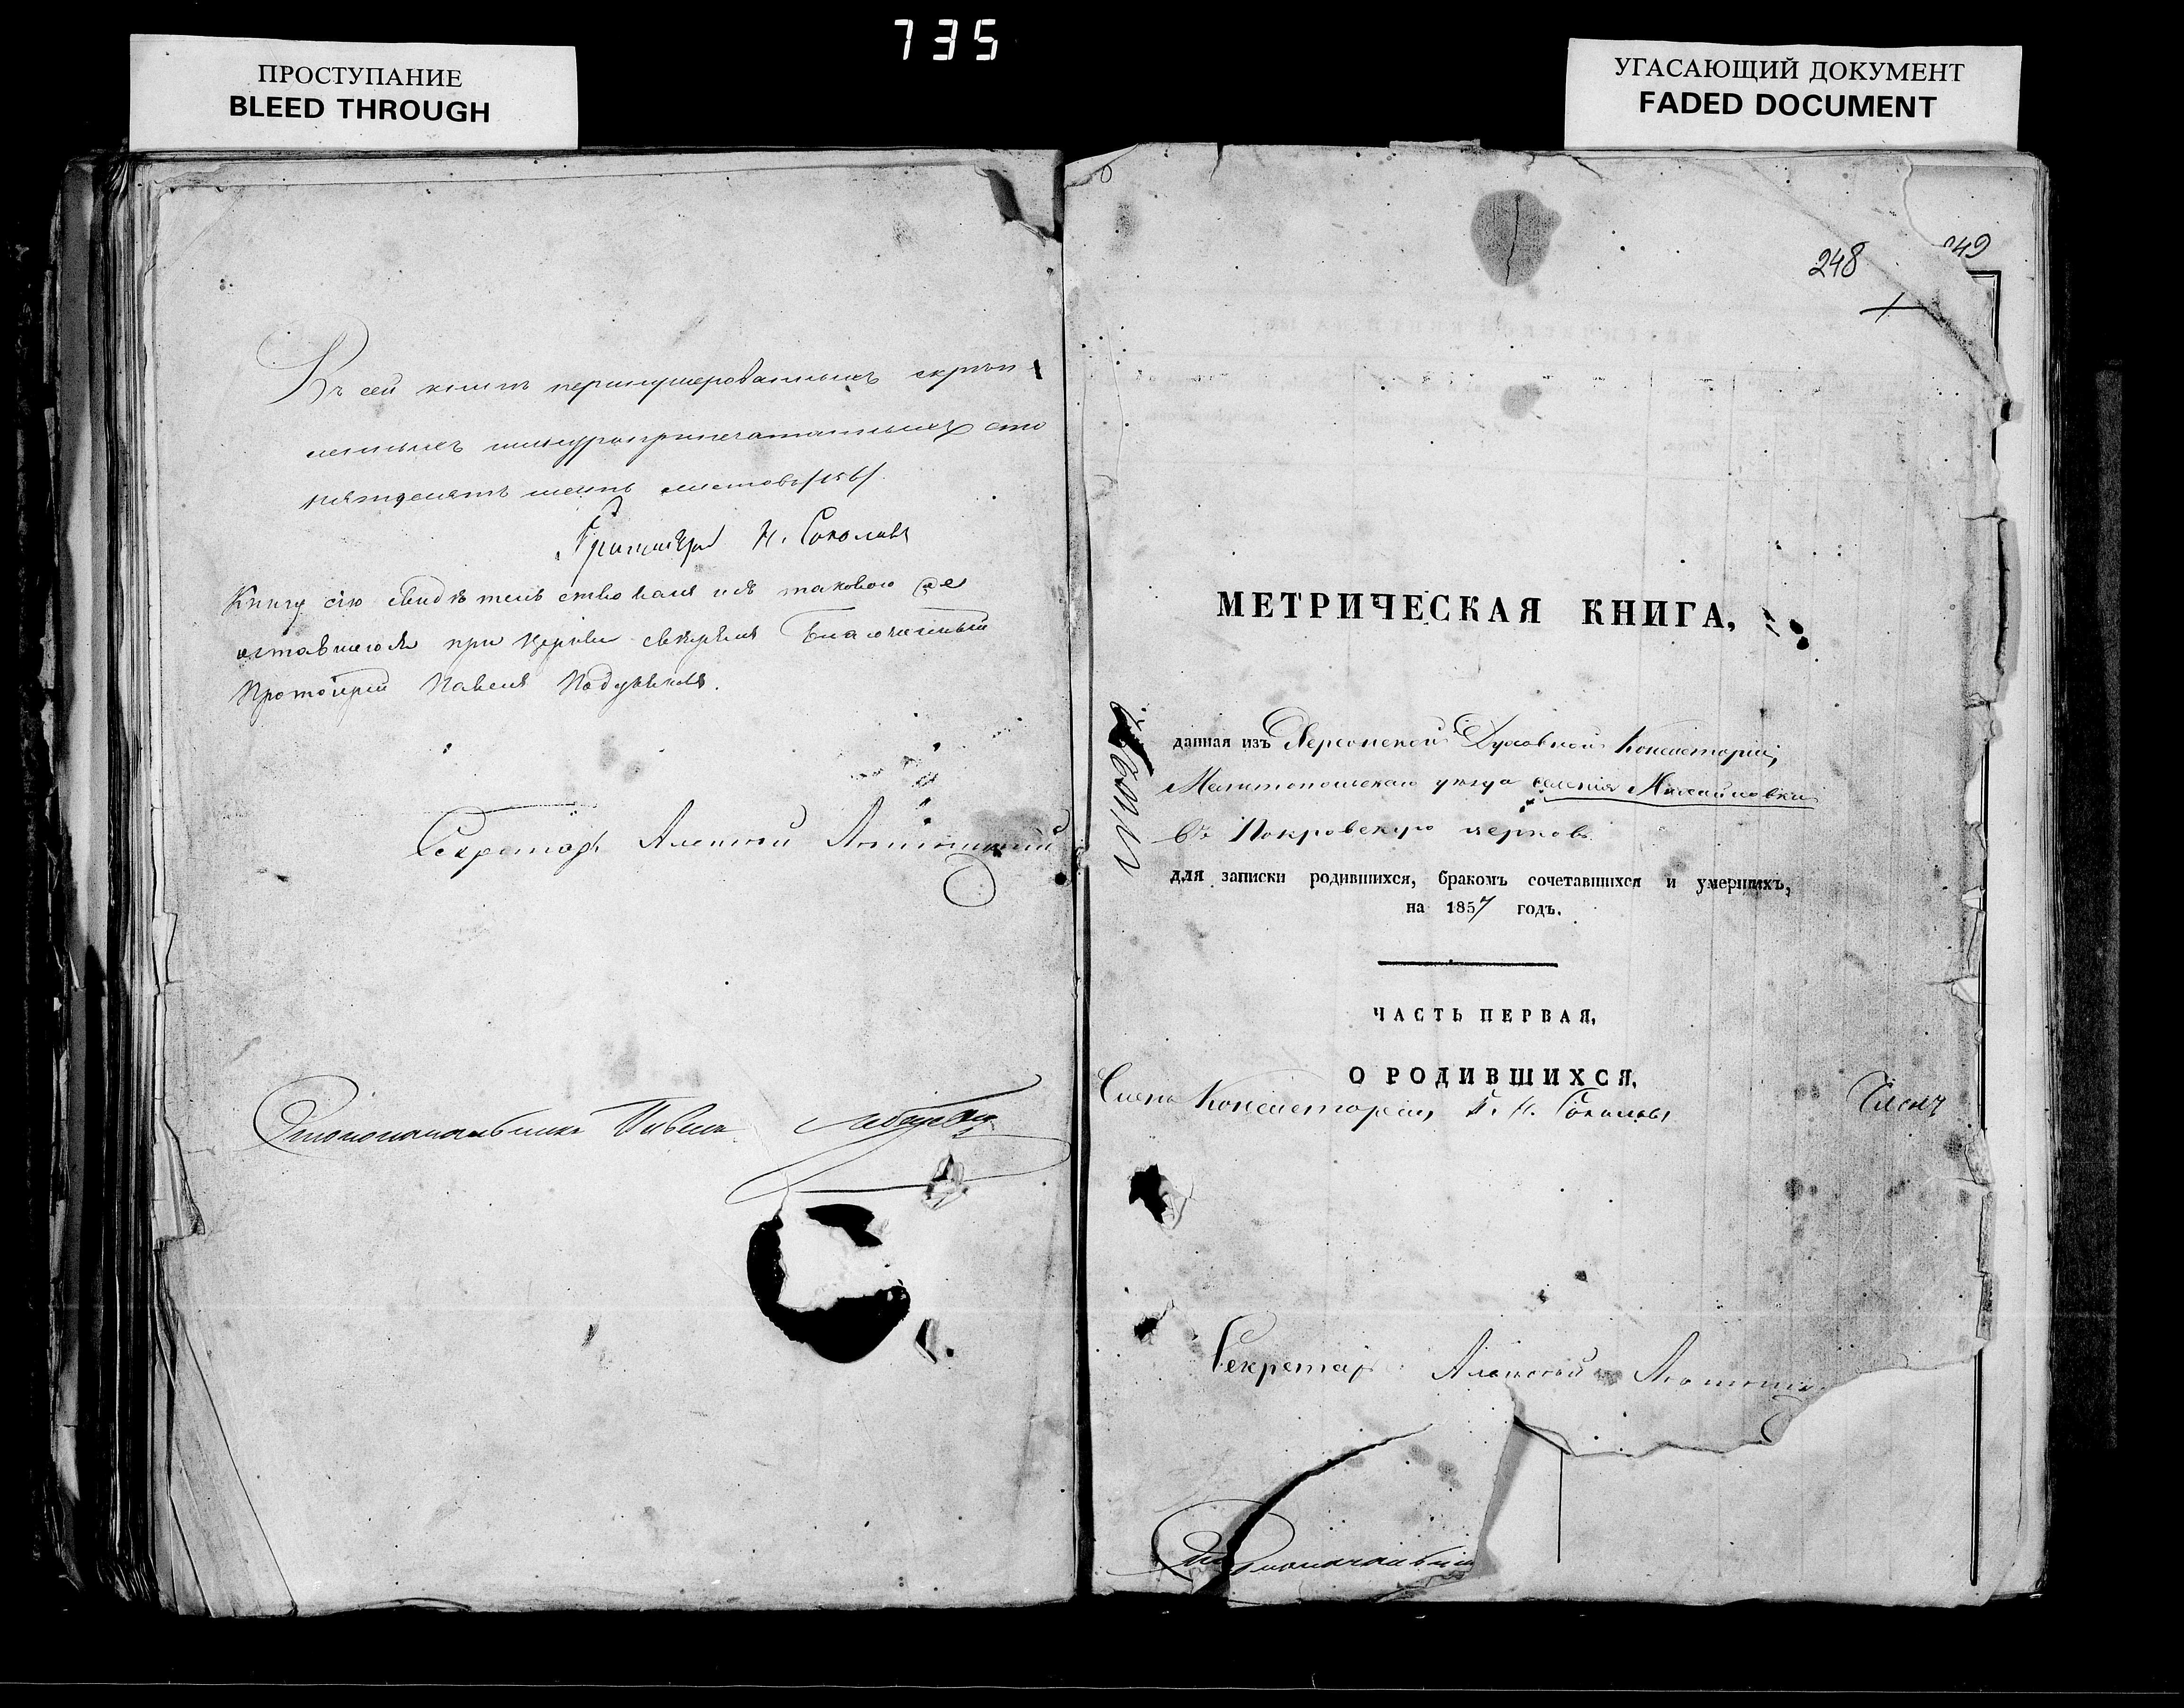 735
ПРОСТУПАНИЕ
BLEED THROUGH
УГАСАЮЩИЙ ДОКУМЕНТ
FADED DOCUMENT
Въ сей книгѣ перенумерованныхъ скрѣп-
ленныхъ шнуроприпечатанныхъ сто
пятдесятъ шесть листовъ /156/.
Н. Соколовъ
Книгу сію свидѣтельствовалъ и съ таковою же
оставшеюся при церкви свѣрялъ Благочинный
Протоіерей Павелъ
Секретарь Алексей
Столоначальникъ
248
249
МЕТРИЧЕСКАЯ КНИГА,
данная изъ Херсонской Духовной Консисторіи,
Мелитопольскаго уѣзда селенія Михайловки
въ Покровскую церковь
для записки родившихся, бракомъ сочетавшихся и умершихъ,
на 1857 годъ.
ЧАСТЬ ПЕРВАЯ,
О РОДИВШИХСЯ,
Членъ Консисторіи, Н. Соколовъ
Членъ
Секретарь Алексей
Столоначальник